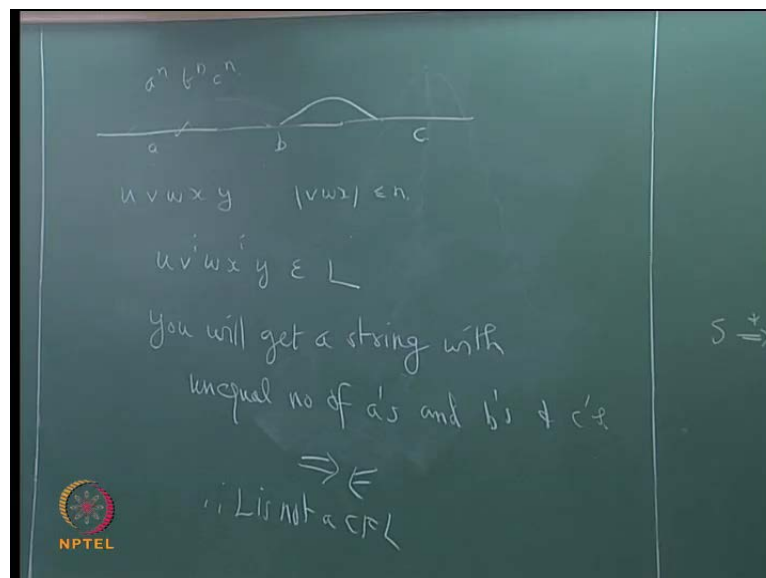 aⁿ bⁿ cⁿ
a b c
u v w x y |vwx| ≤ n.
u vⁱ w xⁱ y ε L
You will get a string with
unequal no of a's and b's & c's
S ⇒
⇒⇐
∴ L is not a CFL
NPTEL